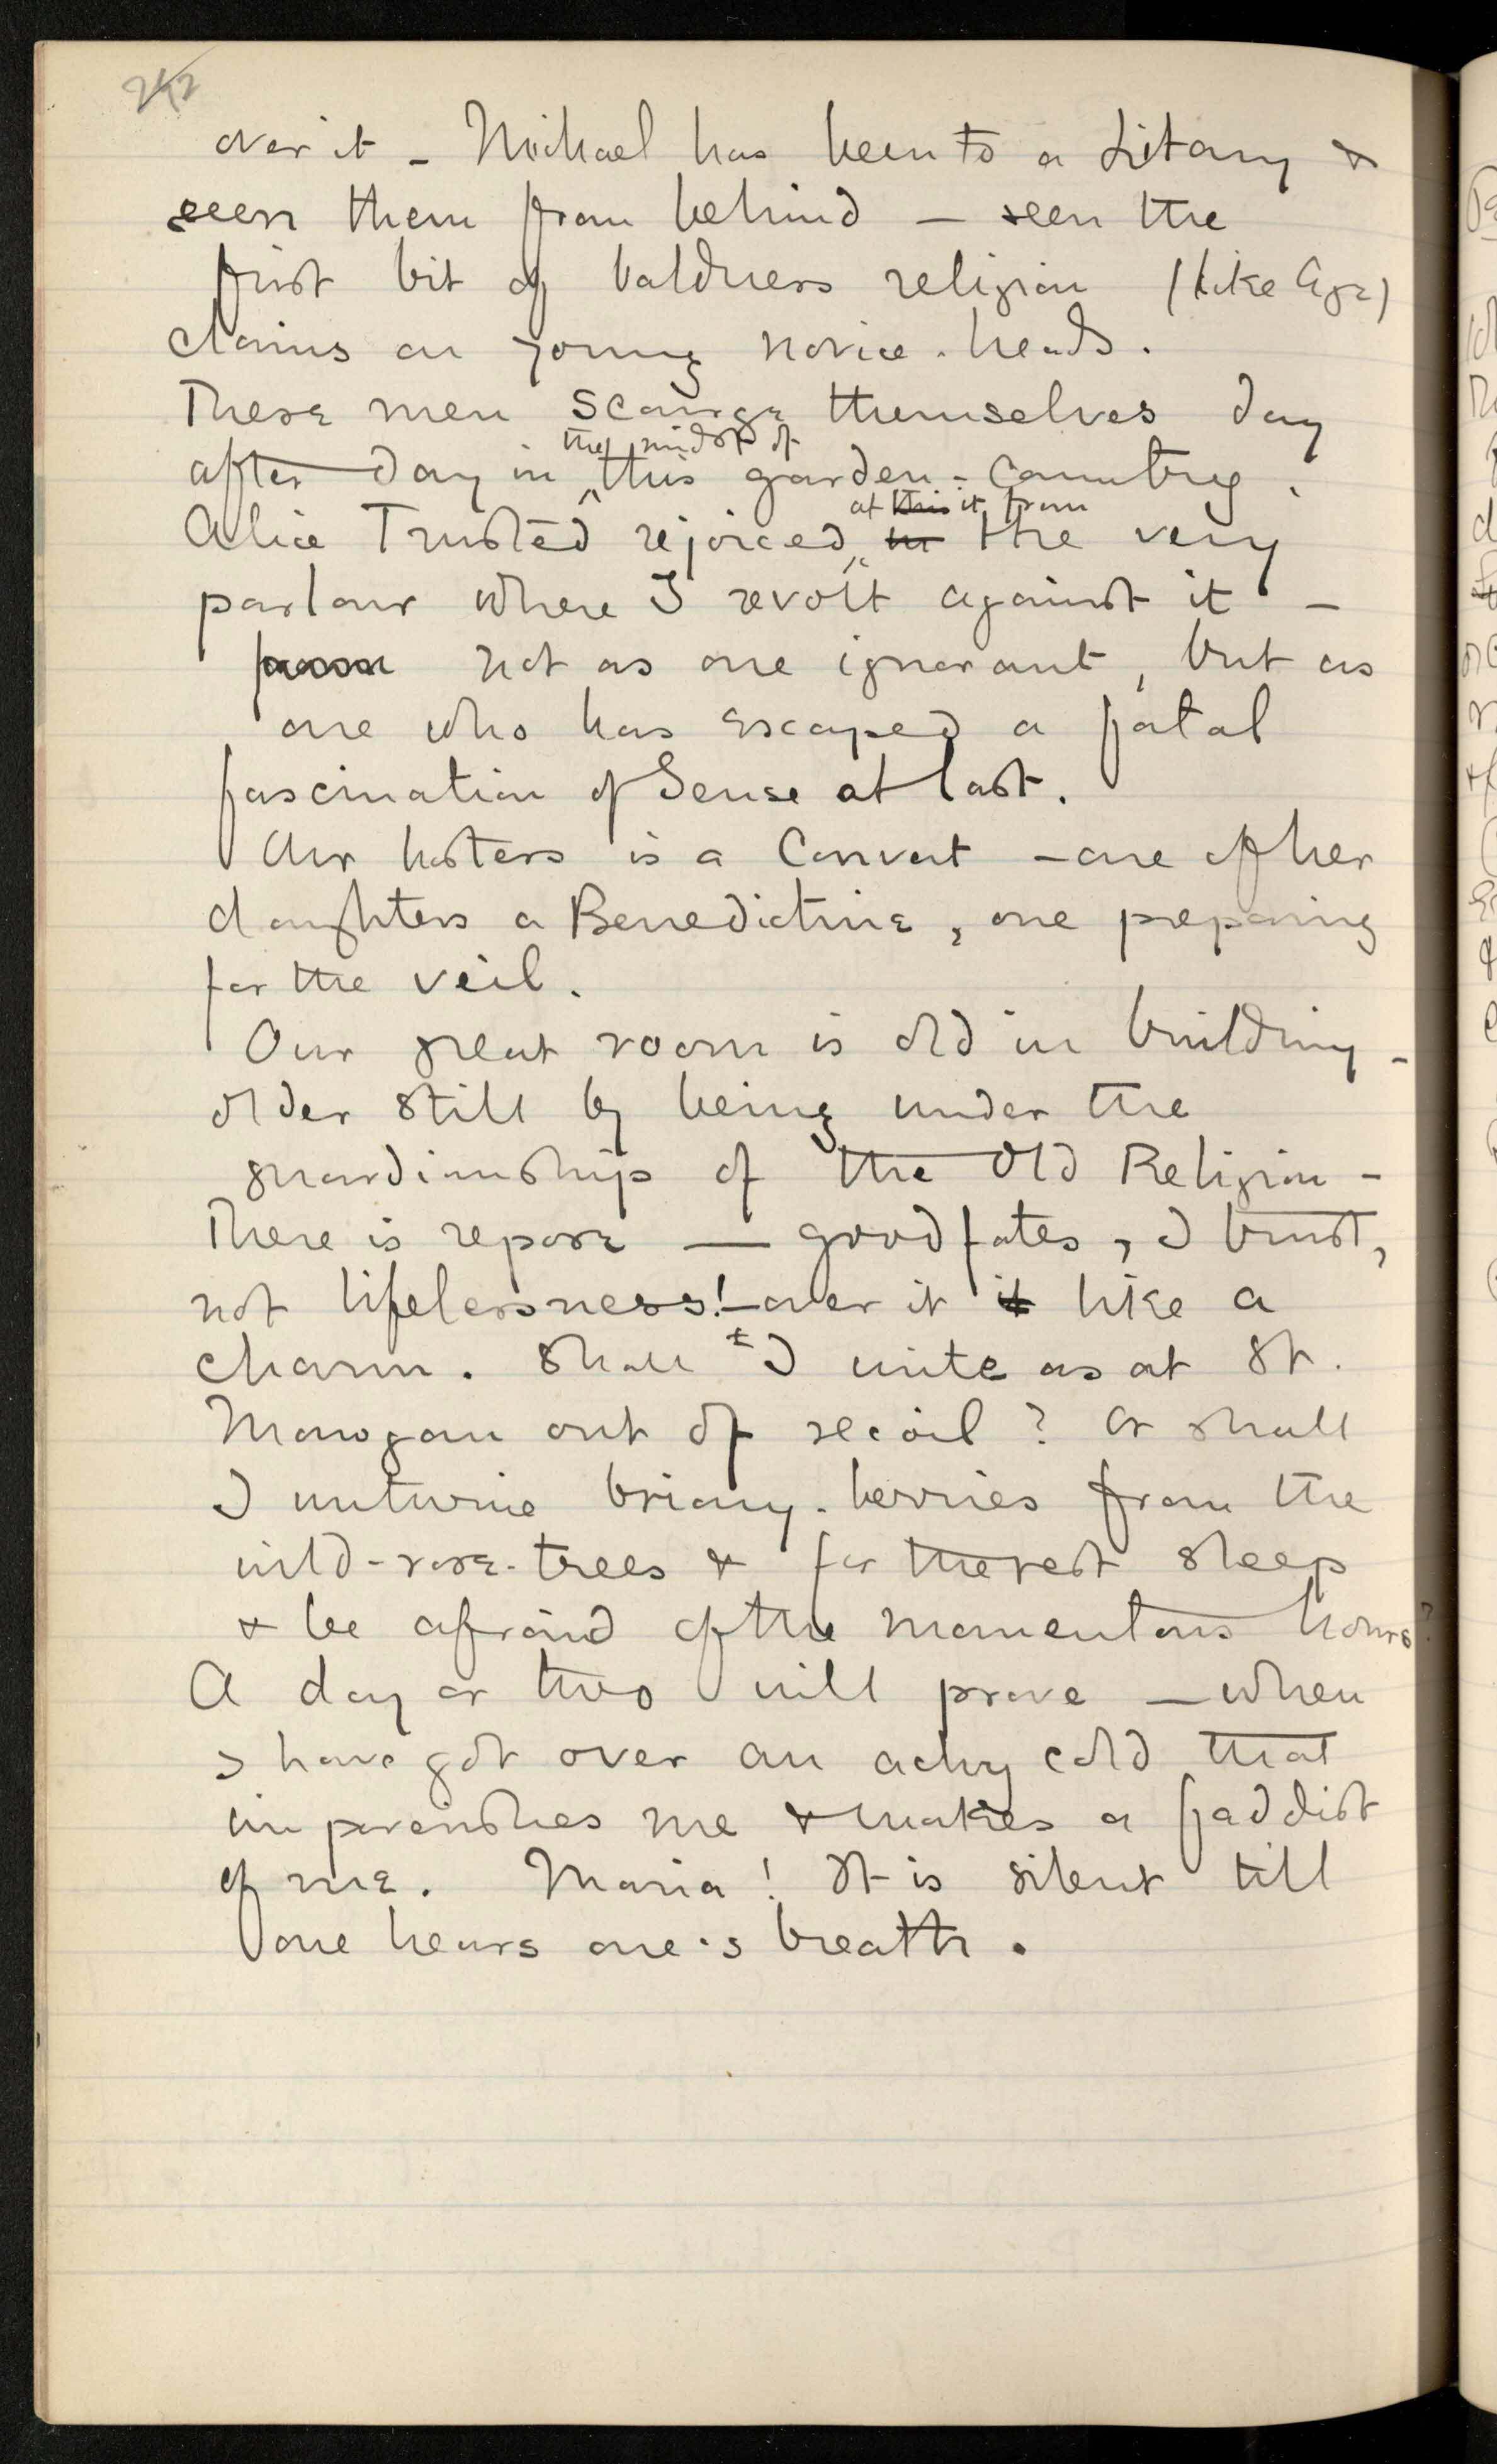 242
over it – Michael has been to a Litany &
seen them from behind – seen the
first bit of baldness religion (like Age)
claims on young novice-heads.
These men scourge themselves day
after day in the midst of this garden-country.
Alice Trusted rejoiced at this it, from in the very
parlour where I revolt against it –
not as one ignorant, but as
one who has escaped a fatal
fascination of Sense at last.
Our hostess is a Convert – one of her
daughters a Benedictine, one preparing
for the veil.
Our great room is old in building –
older still by being under the
guardianship of the Old Religion –
There is repose — good fates, I trust,
not lifelessness! – over it it like a
charm. Shall I write as at St.
Mawgan out of recoil? Or shall
I untwine briony-berries from the
wild-rose-trees & for the rest sleep
& be afraid of the momentous hours?
A day or two will prove – when
I have got over an achy cold that
impoverishes me & makes a faddist
of me. Maria! It is silent till
one hears one's breath.